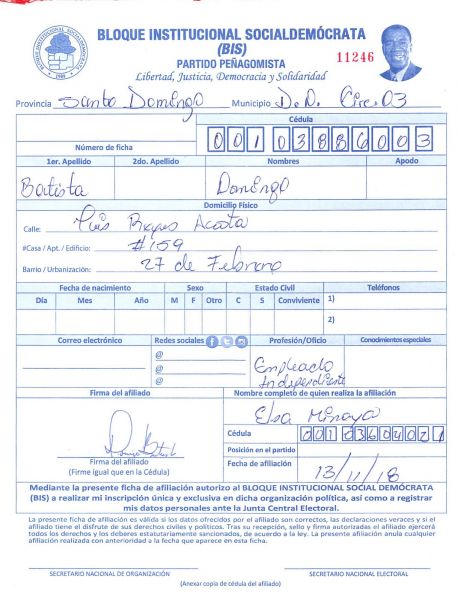 BLOQUE INSTITUCIONAL SOCIALDEMÓCRATA
(BIS)
PARTIDO PEÑAGOMISTA
Libertad, Justicia, Democracia y Solidaridad
11246
Provincia Santo Domingo Municipio D.N. Circ. 03
Cédula
Número de ficha 001 0388600 3
1er. Apellido 2do. Apellido Nombres Apodo
Batista Domingo
Domicilio Físico
Calle: Luis Reyes Acosta
#Casa / Apt. / Edificio: #159
Barrio / Urbanización: 27 de Febrero
Fecha de nacimiento Sexo Estado Civil Teléfonos
Día Mes Año M F Otro C S Conviviente 1)
2)
Correo electrónico Redes sociales Profesión/Oficio Conocimientos especiales
@
@
@
Empleado
Independiente
Firma del afiliado Nombre completo de quien realiza la afiliación
Elsa Minaya
Cédula 001 0360402
Posición en el partido
Firma del afiliado
(Firme igual que en la Cédula)
Fecha de afiliación 13/11/18
Mediante la presente ficha de afiliación autorizo al BLOQUE INSTITUCIONAL SOCIAL DEMÓCRATA
(BIS) a realizar mi inscripción única y exclusiva en dicha organización política, así como a registrar
mis datos personales ante la Junta Central Electoral.
La presente ficha de afiliación es válida si los datos ofrecidos por el afiliado son correctos, las declaraciones veraces y si el
afiliado tiene el disfrute de sus derechos civiles y políticos. Tras su recepción, sello y firma autorizadas el afiliado ejercerá
todos los derechos y los deberes estatutariamente sancionados, de acuerdo a la ley. La presente afiliación anula cualquier
afiliación realizada con anterioridad a la fecha que aparece en esta ficha.
SECRETARIO NACIONAL DE ORGANIZACIÓN SECRETARIO NACIONAL ELECTORAL
(Anexar copia de cédula del afiliado)